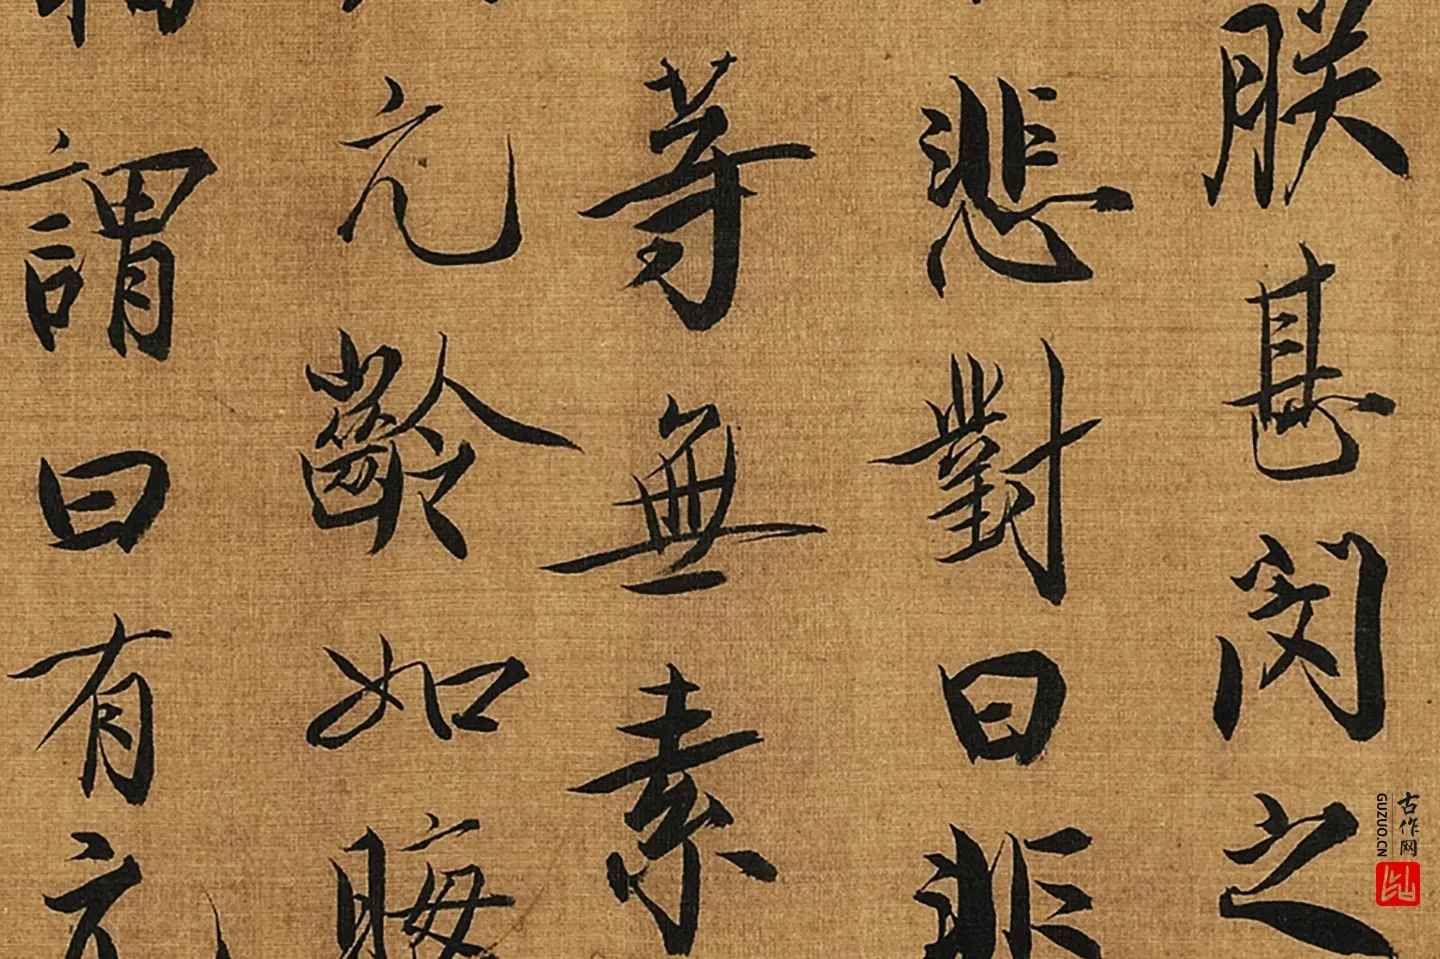 朕甚閔之
悲對曰非
等無素
元齡如晦
謂曰有元
古作网
GUZUO.CN